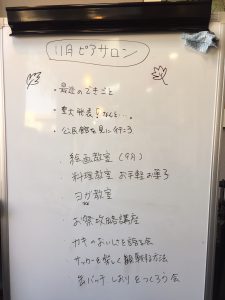 11月ピアサロン
・最近のできごと
・重大発表!なんと…。
・公民館を見に行こう
絵画教室(9月)
料理教室 お手軽お菓子
ヨガ教室
お祭攻略講座
カキのおいしさを語る会
サッカーを楽しく観戦する方法
缶バッチ しおりをつくろう会